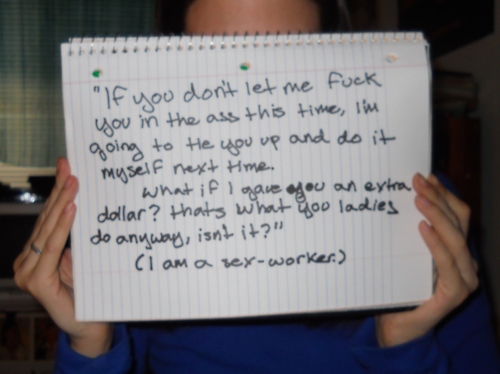 "If you don't let me fuck
you in the ass this time, I'm
going to tie you up and do it
myself next time.
what if I gave you an extra
dollar? thats what you ladies
do anyway, isn't it?"
(I am a sex-worker.)